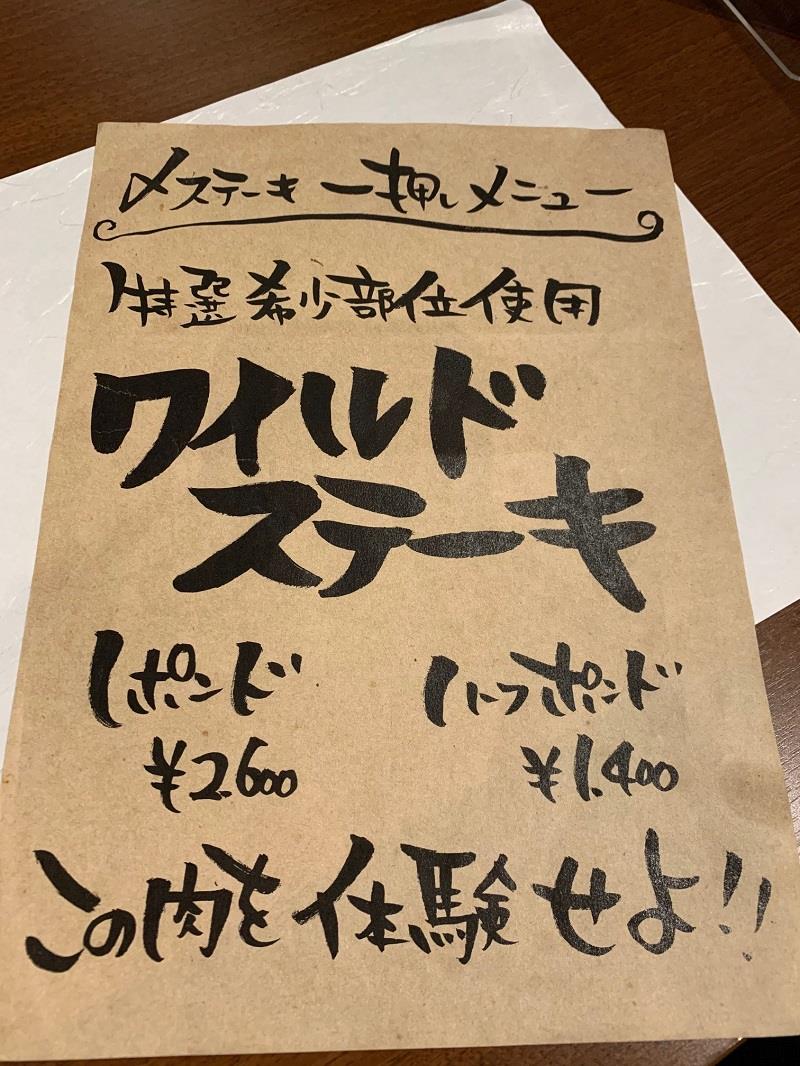 〆ステーキ 一押しメニュー
特選希少部位使用
ワイルド
ステーキ
1ポンド ハーフポンド
¥2.600 ¥1.400
この肉を体験せよ!!